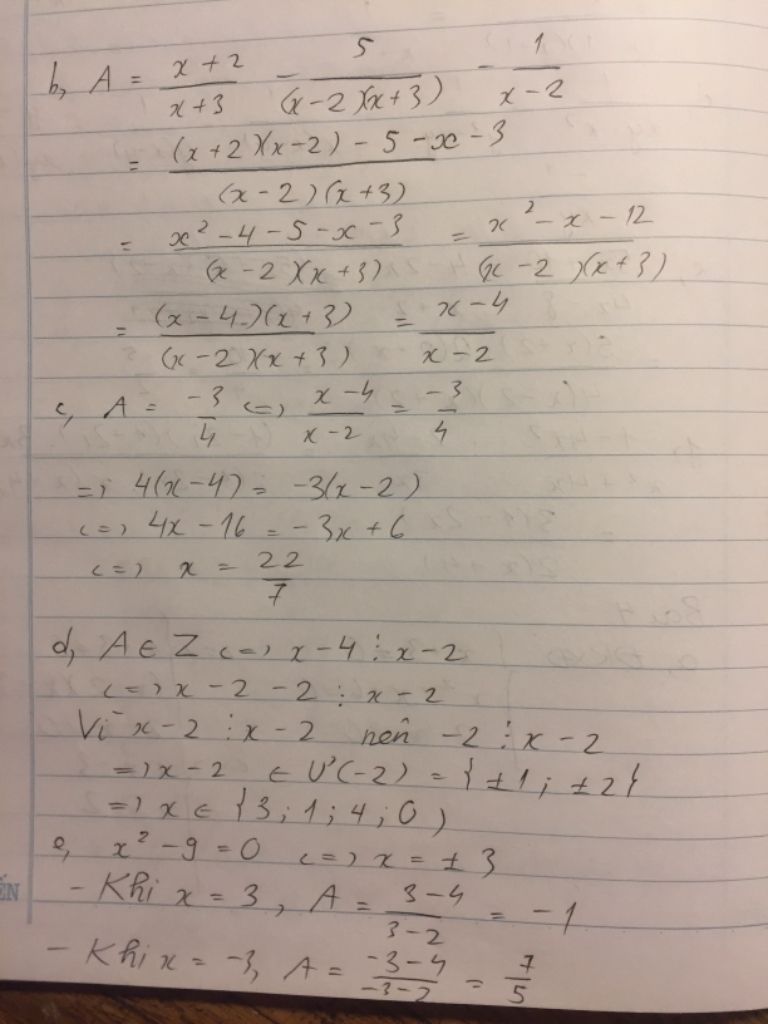 b, A = (x + 2)/(x + 3) - 5/((x - 2)(x + 3)) - 1/(x - 2)
= ((x + 2)(x - 2) - 5 - x - 3)/((x - 2)(x + 3))
= (x² - 4 - 5 - x - 3)/((x - 2)(x + 3)) = (x² - x - 12)/((x - 2)(x + 3))
= ((x - 4)(x + 3))/((x - 2)(x + 3)) = (x - 4)/(x - 2)
c, A = -3/4 <=> (x - 4)/(x - 2) = -3/4
=> 4(x - 4) = -3(x - 2)
<=> 4x - 16 = -3x + 6
<=> x = 22/7
d, A ∈ Z <=> x - 4 ⋮ x - 2
<=> x - 2 - 2 ⋮ x - 2
Vì x - 2 ⋮ x - 2 nên -2 ⋮ x - 2
=> x - 2 ∈ Ư(-2) = {±1; ±2}
=> x ∈ {3; 1; 4; 0}
e, x² - 9 = 0 <=> x = ±3
- Khi x = 3, A = (3 - 4)/(3 - 2) = -1
- Khi x = -3, A = (-3 - 4)/(-3 - 2) = 7/5